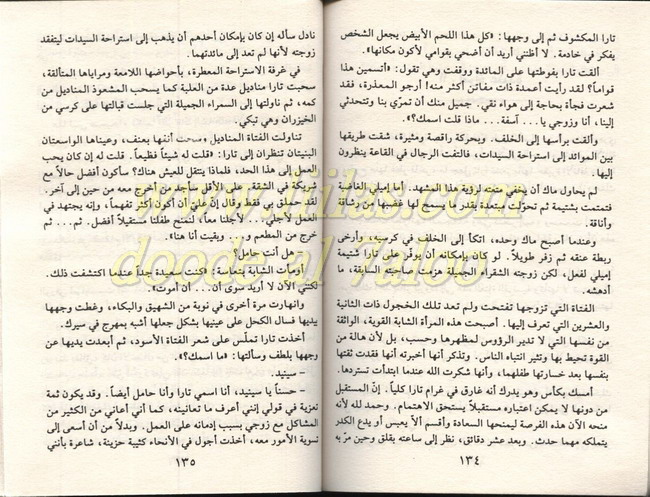 تارا المكشوف ثم إلى وجهها: «كل هذا اللحم الأبيض يجعل الشخص
يفكر في خادعة. لا أظنني أريد أن أضحي بقوامي لأكون مكانها».
ألقت تارا بفوطتها على المائدة ووقفت وهي تقول: «أتسمين هذا
قواماً؟ لقد رأيت أعمدة ذات مفاتن أكثر منه! أرجو المعذرة، فقد
شعرت فجأة بحاجة إلى هواء نقي. جميل منك أن تمرّي بنا وتتحدثي
إلينا، أنا وزوجي يا... آسفة... ماذا قلت اسمك؟».
وألقت برأسها إلى الخلف. وبحركة راقصة ومثيرة، شقت طريقها
بين الموائد إلى استراحة السيدات، فالتفت الرجال في القاعة ينظرون
إليها.
لم يحاول ماك أن يخفي متعته لرؤية هذا المشهد. أما إميلي الغاضبة
فتمتمت بشتيمة ثم تحركت مبتعدة بقدر ما يسمح لها غضبها من رشاقة
وأناقة.
وعندما أصبح ماك وحده، اتكأ إلى الخلف في كرسيه، وأرخى
ربطة عنقه ثم زفر طويلاً. لو كان بإمكانه أن يوفّر على تارا شتيمة
إميلي لفعل، لكن زوجته الشقراء الجميلة هزمت صاحبته السابقة، ما
أدهشه.
الفتاة التي تزوجها تفتحت ولم تعد تلك الخجول ذات الثانية
والعشرين التي تعرف إليها. أصبحت هذه المرأة الشابة القوية، الواثقة
من نفسها التي لا تدير الرؤوس لمظهرها وحسب، بل لأن هالة من
القوة تحيط بها وتثير انتباه الناس. وتذكر أنها أخبرته أنها فقدت ثقتها
بنفسها بعد خسارتها طفلهما، وأنها شكرت الله عندما ابتدأت تستردها.
أمسك بكأس وهو يدرك أنه غارق في غرام تارا كلياً. إنّ المستقبل
من دونها لا يمكن اعتباره مستقبلاً يستحق الاهتمام. وحمد لله لأنه
منحه الآن هذه الفرصة ليمنحها السعادة وأقسم ألاّ يعبس أو يدع الكدر
يتملكه مهما حدث. وبعد عشر دقائق، نظر إلى ساعته بقلق وحين مرّ به
١٣٤
نادل سأله إن كان بإمكان أحدهم أن يذهب إلى استراحة السيدات ليتفقد
زوجته لأنها لم تعد إلى مائدتهما.
في غرفة الاستراحة المعطرة، بأحواضها اللامعة ومراياها المتألقة،
سحبت تارا مناديل عدة من العلبة كما يسحب المشعوذ المناديل من
كمه، ثم ناولتها إلى السمراء الجميلة التي جلست قبالتها على كرسي من
الخيزران وهي تبكي.
تناولت الفتاة المناديل ومسحت أنفها بعنف، وعيناها الواسعتان
البنيتان تنظران إلى تارا: «قلت له شيئاً فظيعاً. قلت له إن كان يحب
العمل إلى هذا الحد، فلماذا ينتقل للعيش هناك؟ سأكون أفضل حالاً مع
شريكة في الشقة على الأقل سأجد من أخرج معه من حين إلى آخر.
لقد حملق بي فقط وقال إنّ عليّ أن أكون أكثر تفهماً، وإنه يجتهد في
العمل لأجلي... لأجلنا معاً، لنمنح طفلنا مستقبلاً أفضل. ثم... ثم
خرج من المطعم و... وبقيت أنا هنا».
- هل أنت حامل؟
أومأت الشابة بتعاسة: «كنت سعيدة جداً عندما اكتشفت ذلك.
لكنني الآن لا أريد سوى أن... أن أموت!».
وانهارت مرة أخرى في نوبة من الشهيق والبكاء، وغطت وجهها
بيديها فسال الكحل على عينيها بشكل جعلها أشبه بمهرج في سيرك.
أخذت تارا تملّس على شعر الفتاة الأسود، ثم أبعدت يديها عن
وجهها بلطف وسألتها: «ما اسمك؟».
- سينيد.
- حسناً يا سينيد، أنا اسمي تارا وأنا حامل أيضاً. وقد يكون ثمة
تعزية في قولي إنني أعرف ما تعانينه، كما أني أعاني من الكثير من
المشاكل مع زوجي بسبب إدمانه على العمل. وبدلاً من أن أسعى إلى
تسوية الأمور معه، أخذت أجول في الأنحاء كئيبة حزينة، شاعرة بأنني
١٣٥